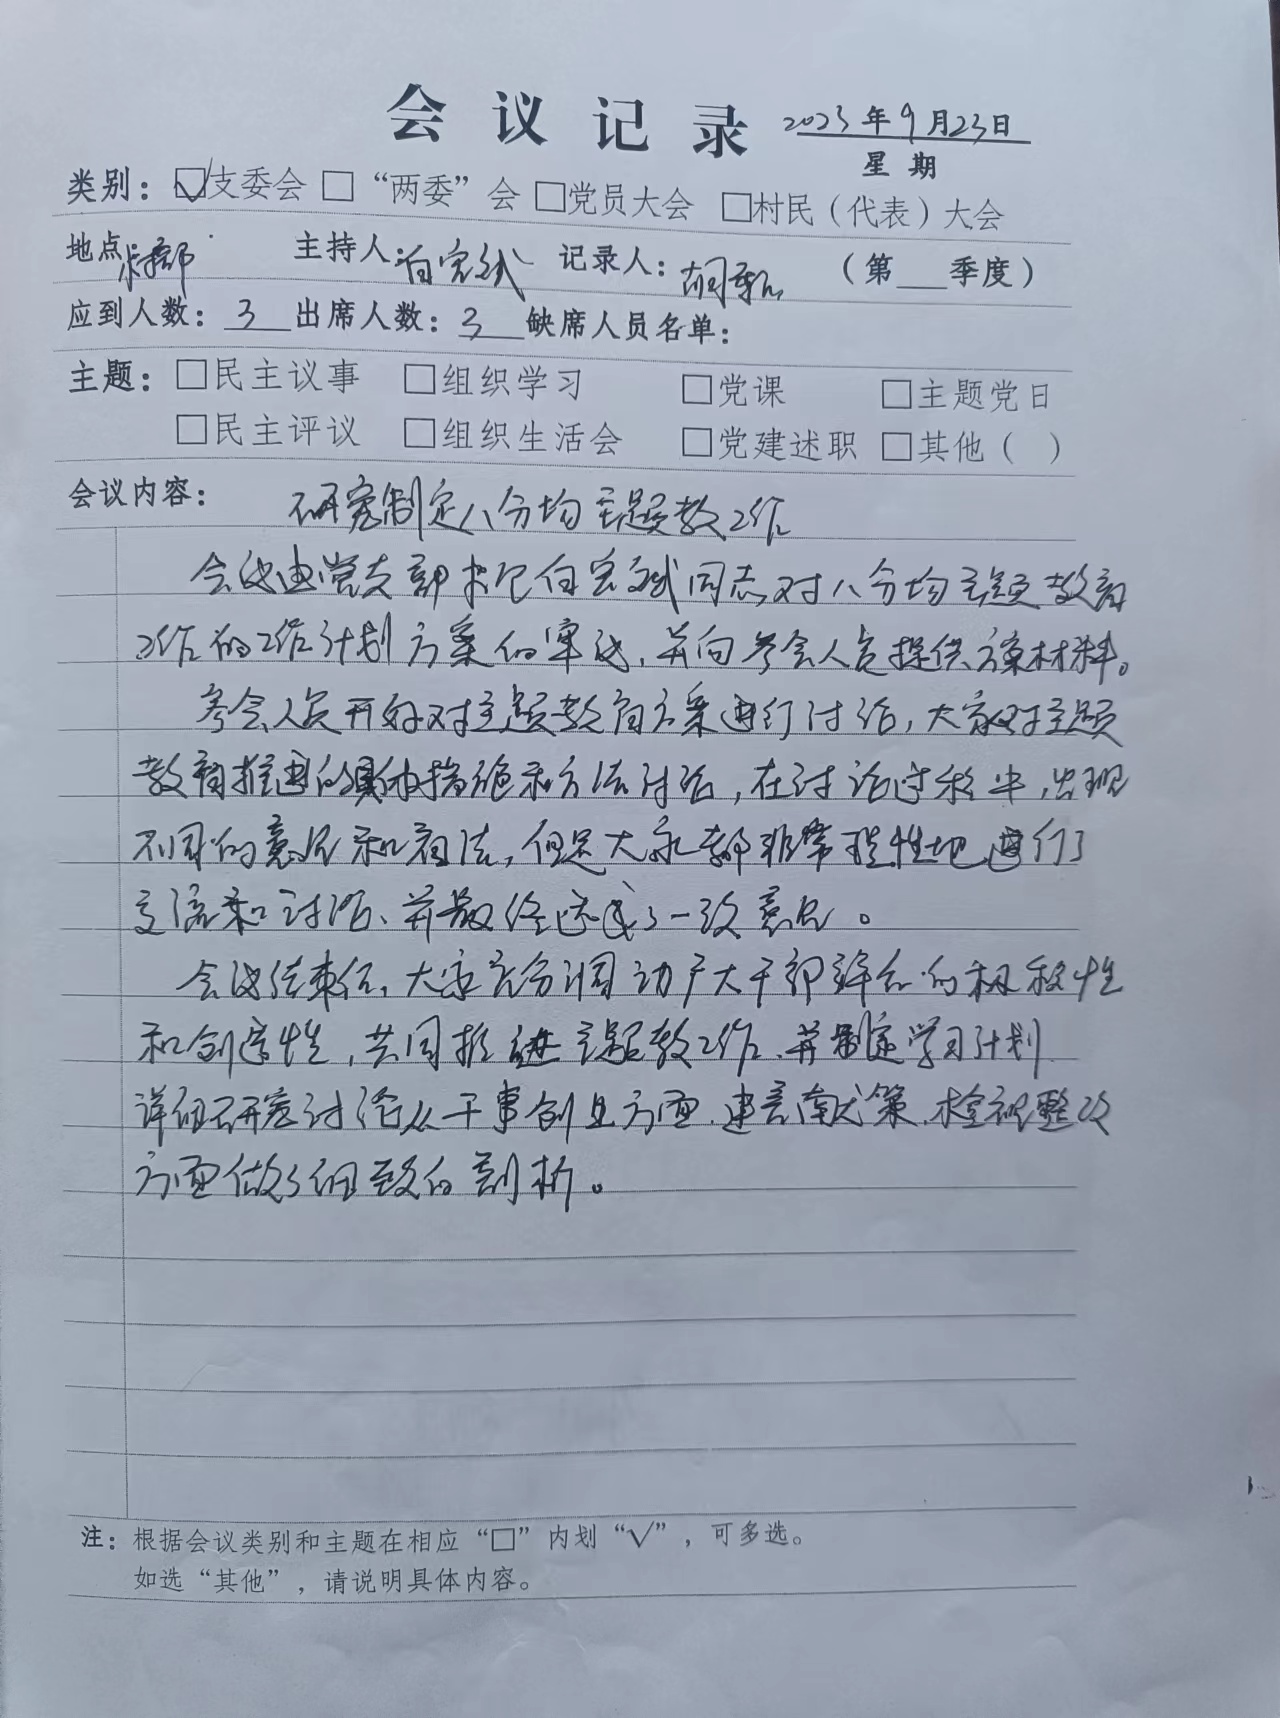 会议记录 2023年9月23日
星期
类别：☑支委会 □“两委”会 □党员大会 □村民（代表）大会
地点 村部 主持人：白宏斌 记录人：胡 （第 季度）
应到人数：3 出席人数：3 缺席人员名单：
主题：□民主议事 □组织学习 □党课 □主题党日
□民主评议 □组织生活会 □党建述职 □其他（ ）
会议内容： 研究制定八分均主题教工作
会议由党支部书记白宏斌同志对八分均主题教育
工作的工作计划方案的审议、并向参会人员提供方案材料。
参会人员开好对主题教育方案进行讨论，大家对主题
教育推进的具体措施和方法讨论，在讨论过程中，出现
不同的意见和看法，但是大家都非常理性地进行了
交流和讨论、并最终达成了一致意见。
会议结束后、大家充分调动广大干部群众的积极性
和创造性，共同推进主题教工作、并制定学习计划
详细研究讨论从干事创业方面、建言献策、检视整改
方面做了细致的剖析。
注：根据会议类别和主题在相应“□”内划“√”，可多选。
如选“其他”，请说明具体内容。